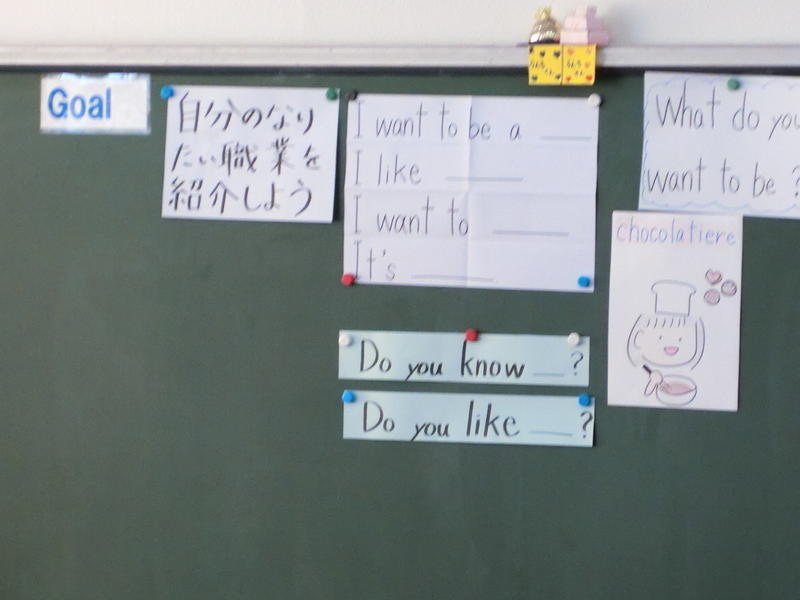 Goal
自分のなり
たい職業を
紹介しよう
I want to be a
I like
I want to
It's
Do you know ?
Do you like ?
What do you
want to be ?
chocolatiere